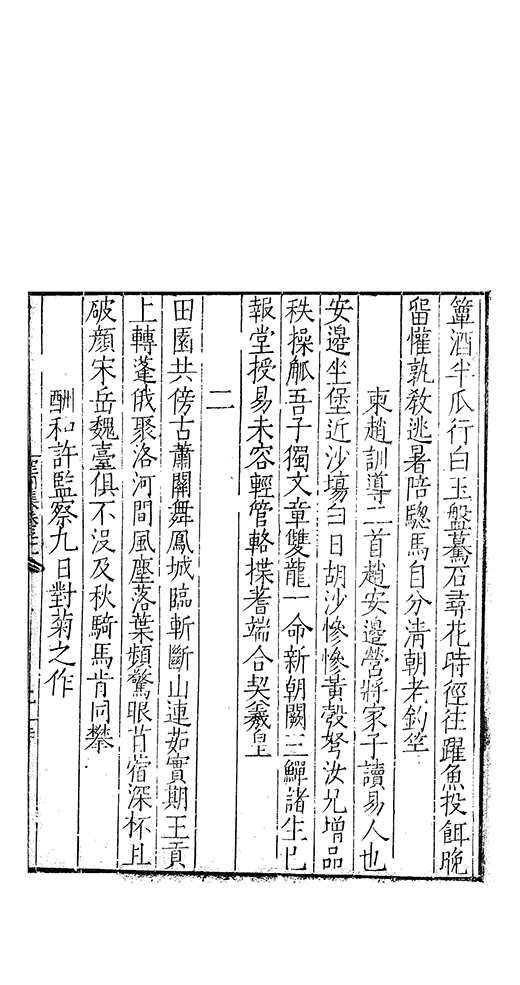 簞酒半瓜行白玉盤驀石尋花時徑往躍魚投餌晚
留懽孰敎逃暑陪驄馬自分清朝老釣竿
柬趙訓導二首趙安邊營將家子讀易人也
安邊坐堡近沙塲白日胡沙慘慘黃彀弩汝兄增品
秩操觚吾子獨文章雙龍一命新朝闕三鱓諸生已
報堂授易未容輕管輅揲蓍端合契羲皇
二
田園共傍古蕭關舞鳳城臨斬斷山連茹實期王貢
上轉蓬俄聚洛河間風塵落葉頻驚眼苜蓿深杯且
破顏宋岳魏臺俱不沒及秋騎馬肯同攀
酬和許監察九日對菊之作